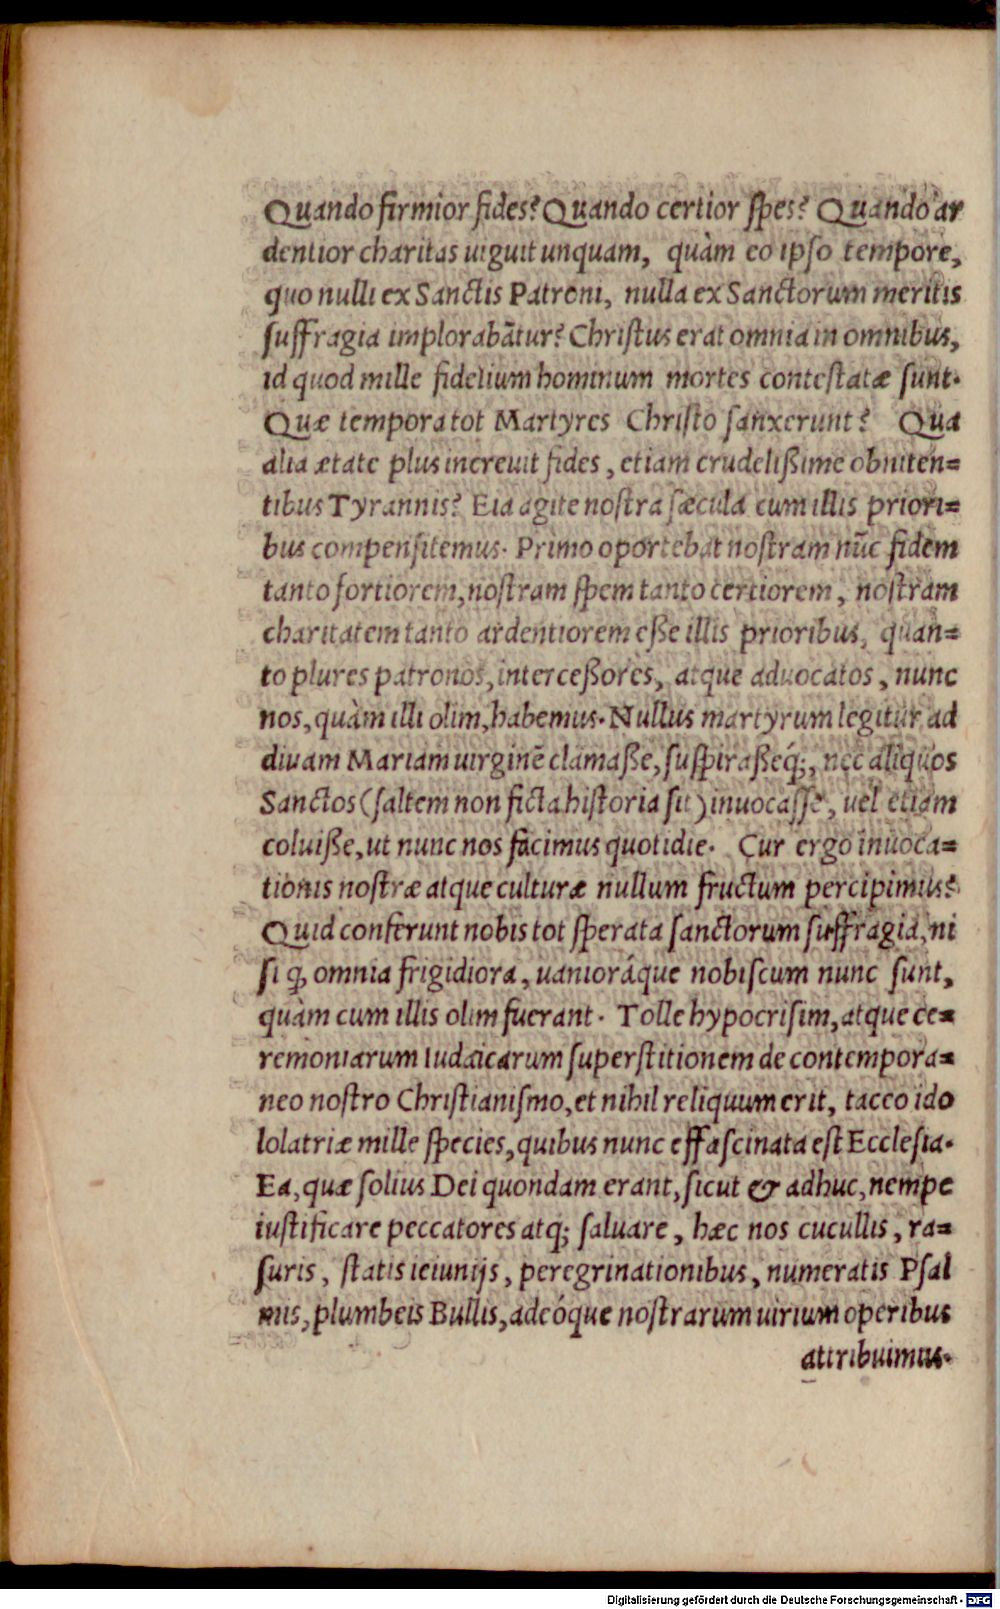 Quando firmior fides? Quando certior spes? Quando ar
dentior charitas uiguit unquam, quàm eo ipso tempore,
quo nulli ex Sanctis Patroni, nulla ex Sanctorum meritis
suffragia implorabātur? Christus erat omnia in omnibus,
id quod mille fidelium hominum mortes contestatæ sunt.
Quæ tempora tot Martyres Christo sanxerunt? Qua
alia ætate plus increuit fides, etiam crudelißime obniten=
tibus Tyrannis? Eia agite nostra sæcula cum illis priori=
bus compensitemus. Primo oportebat nostram nūc fidem
tanto fortiorem, nostram spem tanto certiorem, nostram
charitatem tanto ardentiorem eße illis prioribus, quan=
to plures patronos, interceßores, atque aduocatos, nunc
nos, quàm illi olim, habemus. Nullus martyrum legitur ad
diuam Mariam uirginē clamaße, suspiraßeq́;, nec aliquos
Sanctos (saltem non ficta historia sit) inuocasse, uel etiam
coluiße, ut nunc nos facimus quotidie. Cur ergo inuoca=
tionis nostræ atque culturæ nullum fructum percipimus?
Quid conferunt nobis tot sperata sanctorum suffragia, ni
si q̀ omnia frigidiora, uanioráque nobiscum nunc sunt,
quàm cum illis olim fuerant. Tolle hypocrisim, atque ce=
remoniarum Iudaicarum superstitionem de contempora=
neo nostro Christianismo, et nihil reliquum erit, taceo ido
lolatriæ mille species, quibus nunc effascinata est Ecclesia.
Ea, quæ solius Dei quondam erant, sicut & adhuc, nempe
iustificare peccatores atq; saluare, hæc nos cucullis, ra=
suris, statis ieiunijs, peregrinationibus, numeratis Psal
mis, plumbeis Bullis, adeóque nostrarum uirium operibus
attribuimus.
Digitalisierung gefördert durch die Deutsche Forschungsgemeinschaft - DFG